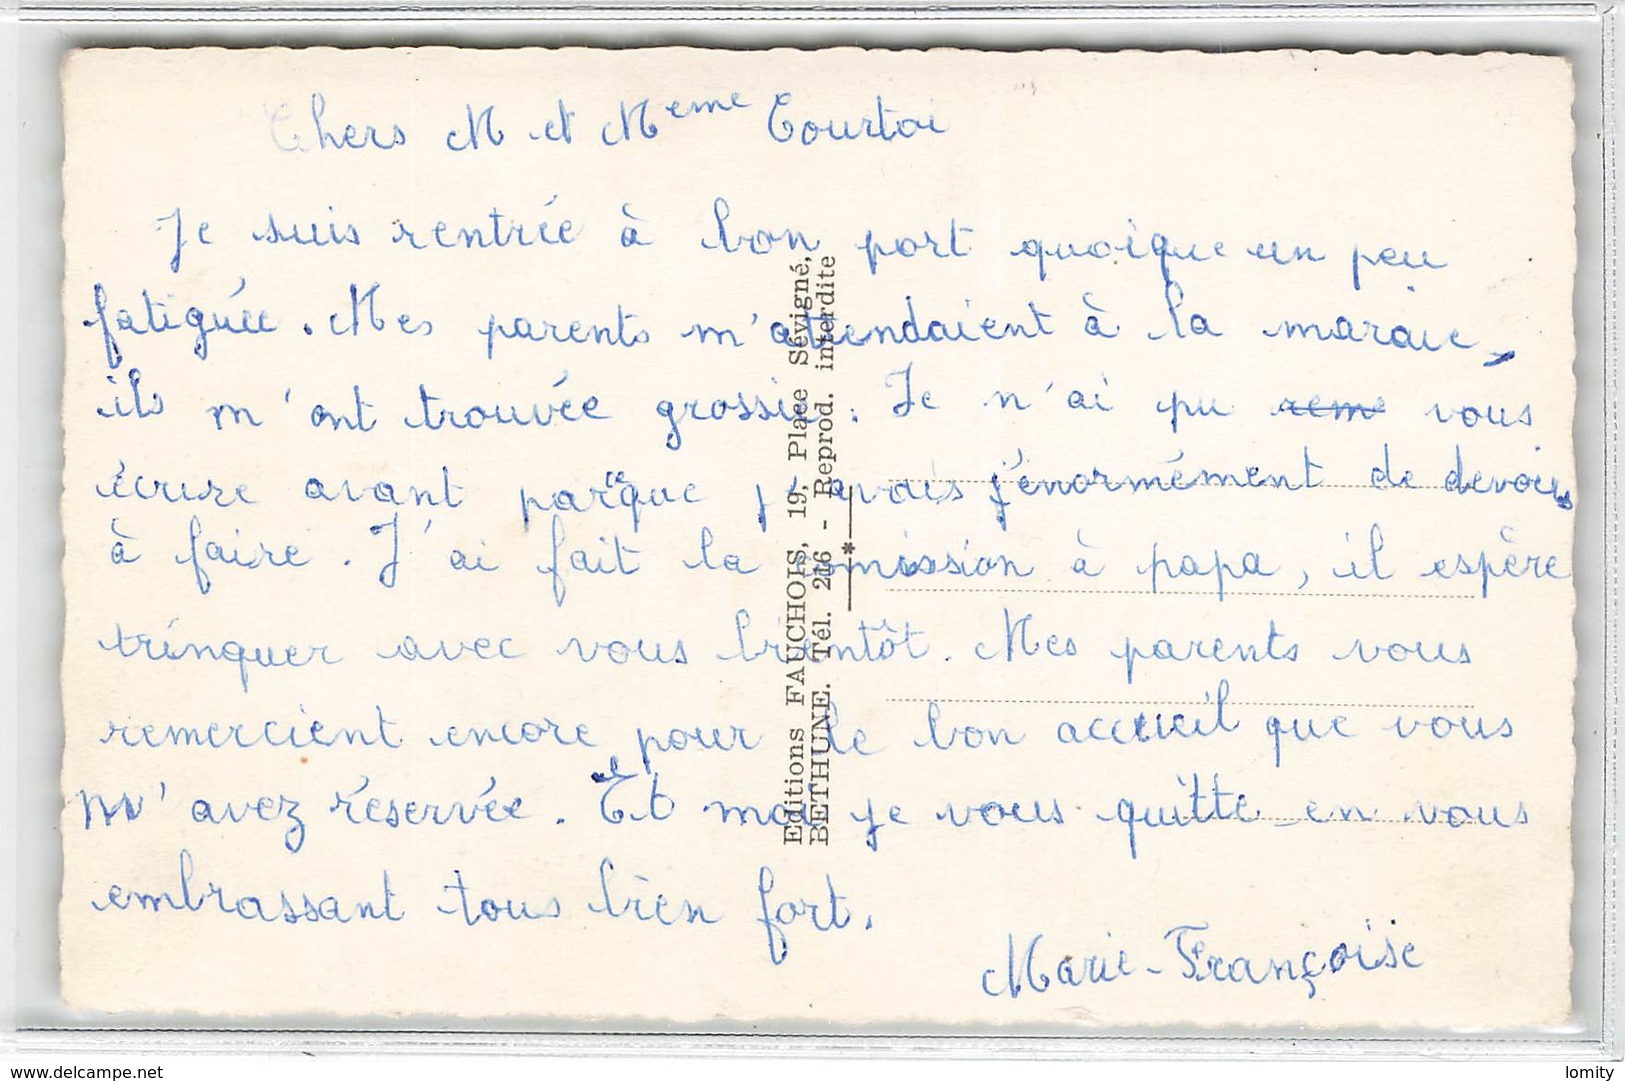 Chers M et Meme Courtoi
Je suis rentrée à bon port quoique un peu
fatiguée. Mes parents m'attendaient à la maraie,
ils m'ont trouvée grossie. Je n'ai pu rem vous
écrire avant parceque j'avais j'énormément de devoirs
à faire. J'ai fait la comission à papa, il espère
trinquer avec vous bientôt. Mes parents vous
remercient encore pour le bon accueil que vous
m'avez réservée. Et moi je vous quitte en vous
embrassant tous bien fort.
Marie-Françoise
Editions FAUCHOIS, 19, Place Sévigné,
BETHUNE. Tél. 216 - Reprod. interdite
delcampe.net
lomity